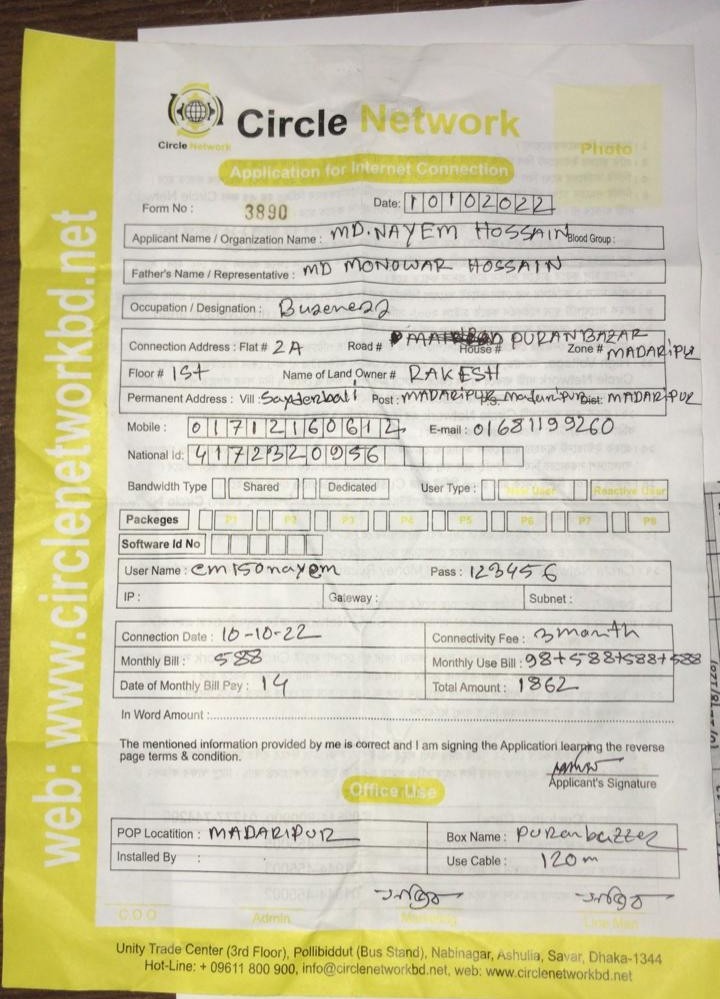 web: www.circlenetworkbd.net
Circle Network
Circle Network
Photo
Application for Internet Connection
Form No : 3890 Date: 10102022
Applicant Name / Organization Name : MD. NAYEM HOSSAIN Blood Group :
Father's Name / Representative : MD MONOWAR HOSSAIN
Occupation / Designation : Busenezz
Connection Address : Flat # 2A Road # House # PURANBAZAR Zone # MADARIPUR
Floor # 1st Name of Land Owner # RAKESH
Permanent Address : Vill : Sayderbali Post : MADARIPUR P.S. Madaripur Dist: MADARIPUR
Mobile : 01712160612 E-mail : 01681199260
National Id: 4172320956
Bandwidth Type Shared Dedicated User Type : New User Reactive User
Packeges P1 P2 P3 P4 P5 P6 P7 P8
Software Id No
User Name : cm150nayem Pass : 123456
IP : Gateway : Subnet :
Connection Date : 10-10-22 Connectivity Fee : 3 month
Monthly Bill : 588 Monthly Use Bill : 98+588+588+588
Date of Monthly Bill Pay : 14 Total Amount : 1862
In Word Amount :
The mentioned information provided by me is correct and I am signing the Application learning the reverse
page terms & condition.
Applicant's Signature
Office Use
POP Locatition : MADARIPUR Box Name : Puranbazzer
Installed By : Use Cable : 120m
C.O.O Admin Marketing Line Man
Unity Trade Center (3rd Floor), Pollibiddut (Bus Stand), Nabinagar, Ashulia, Savar, Dhaka-1344
Hot-Line: + 09611 800 900, info@circlenetworkbd.net, web: www.circlenetworkbd.net